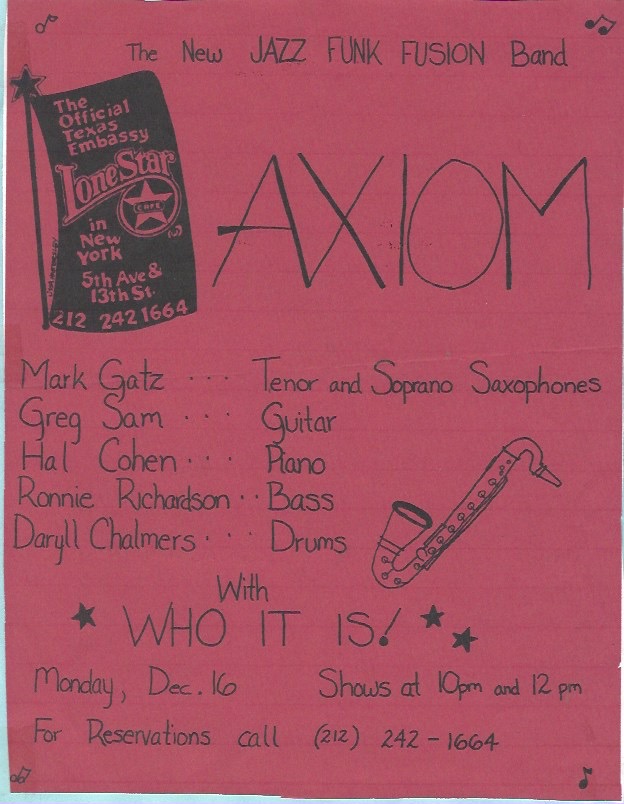 The New JAZZ FUNK FUSION Band
The
Official
Texas
Embassy
Lone Star
CAFE
in
New
York
5th Ave &
13th St.
212 242 1664
AXIOM
Mark Gatz . . . Tenor and Soprano Saxophones
Greg Sam . . . Guitar
Hal Cohen . . . Piano
Ronnie Richardson . . Bass
Daryll Chalmers . . . Drums
With
WHO IT IS!
Monday, Dec. 16 Shows at 10pm and 12 pm
For Reservations call (212) 242-1664